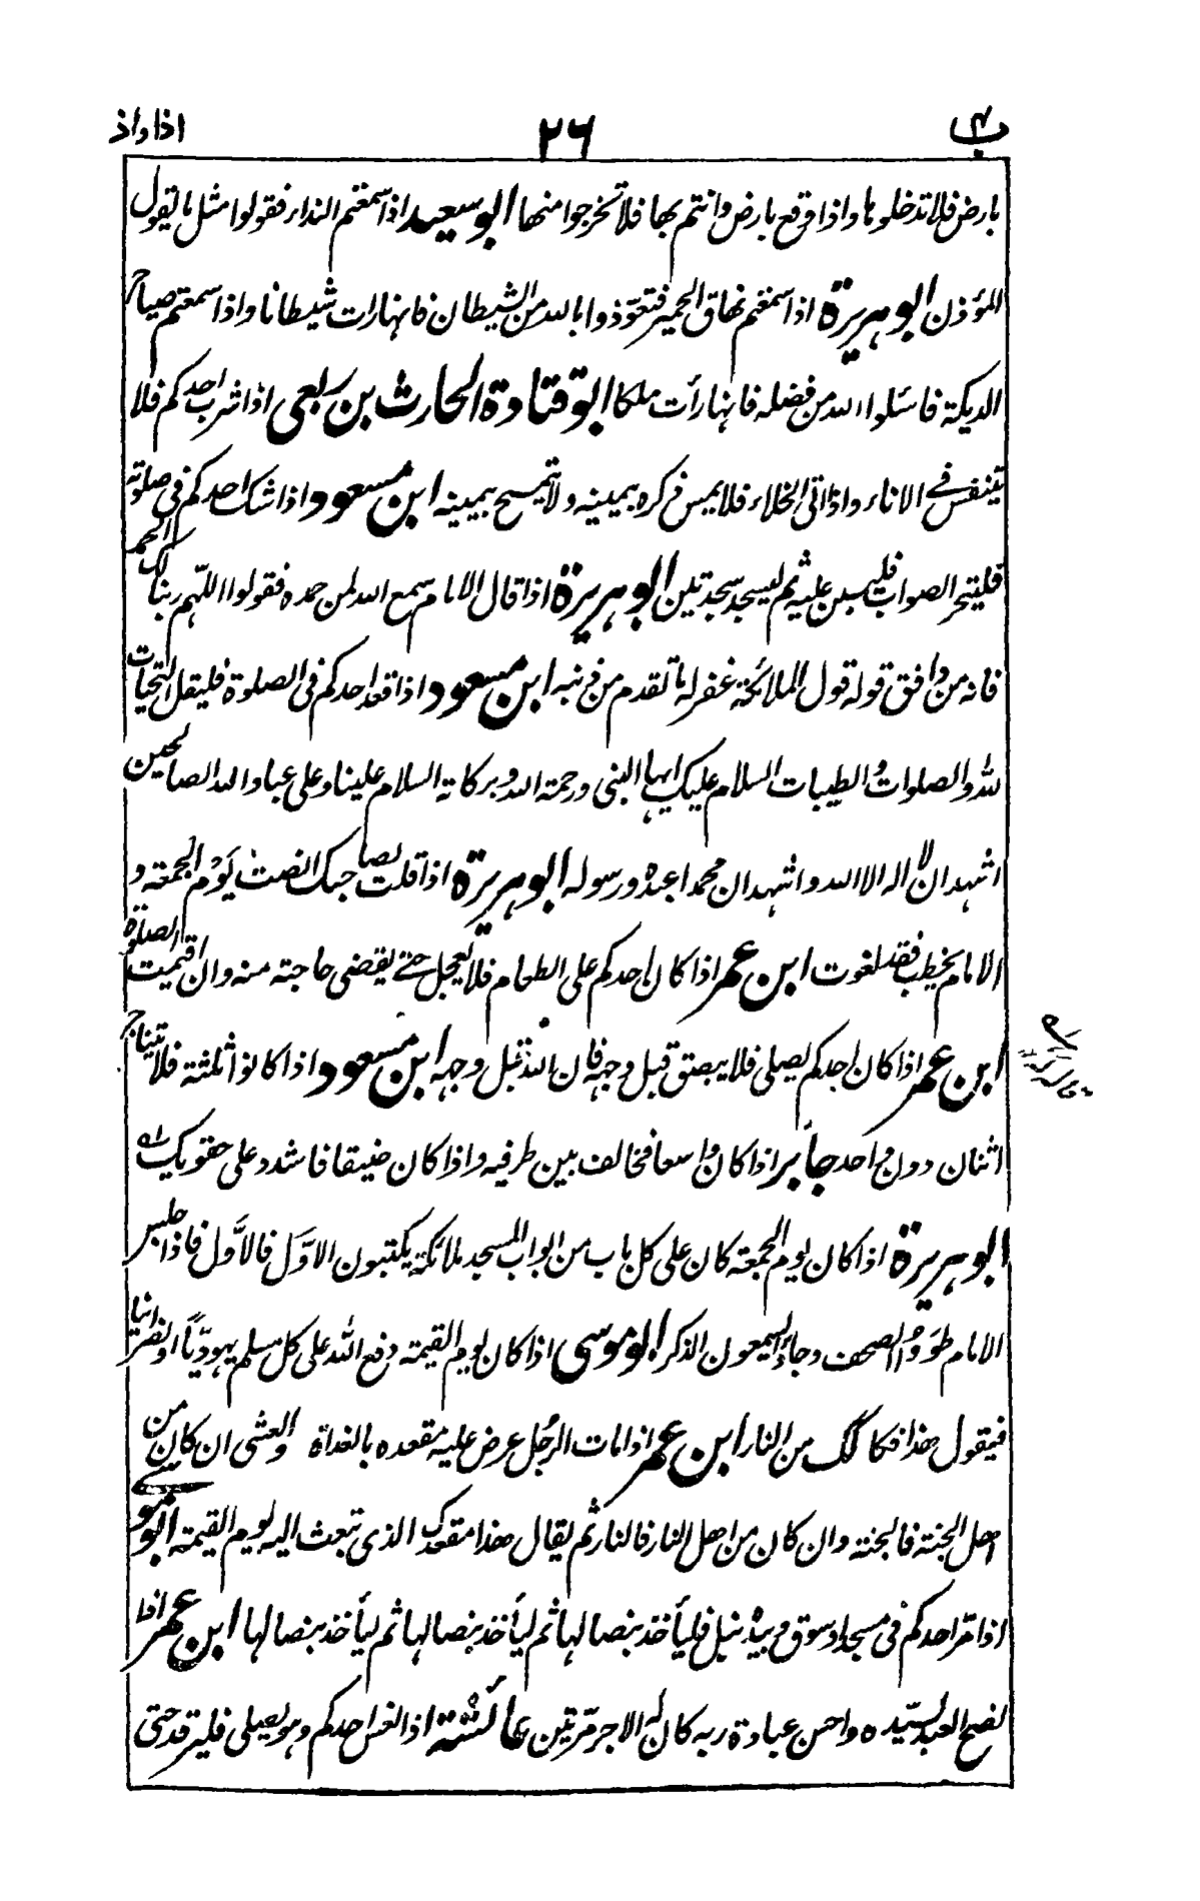 اذا واذ ٢٦ ب
بارض فلا تدخلوها واذا وقع بارض وانتم بها فلا تخرجوا منها ابو سعيد اذا سمعتم النداء فقولوا مثل ما يقول
المؤذن ابو هريرة اذا سمعتم نهاق الحمير فتعوّذوا بالله من الشيطان فانها رات شيطانا واذا سمعتم صياح
الديكة فاسئلوا الله من فضله فانها رأت ملكا ابو قتادة الحارث بن ربعى اذا شرب احدكم فلا
يتنفس فے الاناء واذا اتى الخلاء فلا يمس ذكره بيمينه ولا يتمسح بيمينه ابن مسعود اذا شك احدكم فى صلوته
فليتحر الصواب فليبن عليه ثم ليسجد سجدتين ابو هريرة اذا قال الامام سمع الله لمن حمده فقولوا اللّٰهم ربنا لك الحمد
فانه من وافق قوله قول الملائكة غفر له ما تقدم من ذنبه ابن مسعود اذا قعد احدكم فى الصلوة فليقل التحيات
لله والصلوات والطيبات السلام عليك ايها النبى ورحمة الله وبركاته السلام علينا وعلى عباد الله الصالحين
اشهد ان لا اله الا الله واشهد ان محمدا عبده ورسوله ابو هريرة اذا قلت لصاحبك انصت يَوْم الجمعة و
الامام يخطب فقد لغوت ابن عمر اذا كان احدكم على الطعام فلا يعجل حتے يقضى حاجته منه وان اقيمت الصلوة
ابن عمر اذا كان احدكم يصلى فلا يبصق قبل وجهه فان الله قبل وجهه ابن مسعود اذا كانوا ثلثة فلا يتناج
اثنان دون واحد جابر اذا كان واسعا فخالف بين طرفيه واذا كان ضيقا فاشدد على حقويك
ابو هريرة اذا كان يوم الجمعة كان على كل باب من ابواب المسجد ملائكة يكتبون الاوّل فالاوّل فاذا جلس
الامام طوَوُا الصحف وجاؤا يسمعون الذكر ابو موسى اذا كان يوم القيمة دفع الله على كل مسلم يهوديّاً او نصرانيا
فيقول هذا فكاكك من النار ابن عمر اذا مات الرجُل عرض عليه مقعده بالغداة والعشى ان كان من
اهل الجنة فالجنة وان كان من اهل النار فالنار ثم يقال هذا مقعدك الذى تبعث اليه يوم القيمة ابو موسے
اذا مرّ احدكم فى مسجد او سوق وبيده نبل فليأخذ بنصالها ثم ليأخذ بنصالها ثم ليأخذ بنصالها ابن عمر اذا
نصح العبد لسيّده واحسن عبادة ربه كان له الاجر مرّتين عائشة اذا نعس احدكم وهو يصلى فليرقد حتى